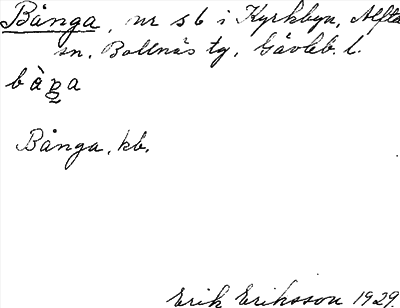 Bånga, nr 56 i Kyrkbyn, Alfta
sn, Bollnäs tg, Gävleb. l.
Bånga, kb.
Erik Eriksson 1929.